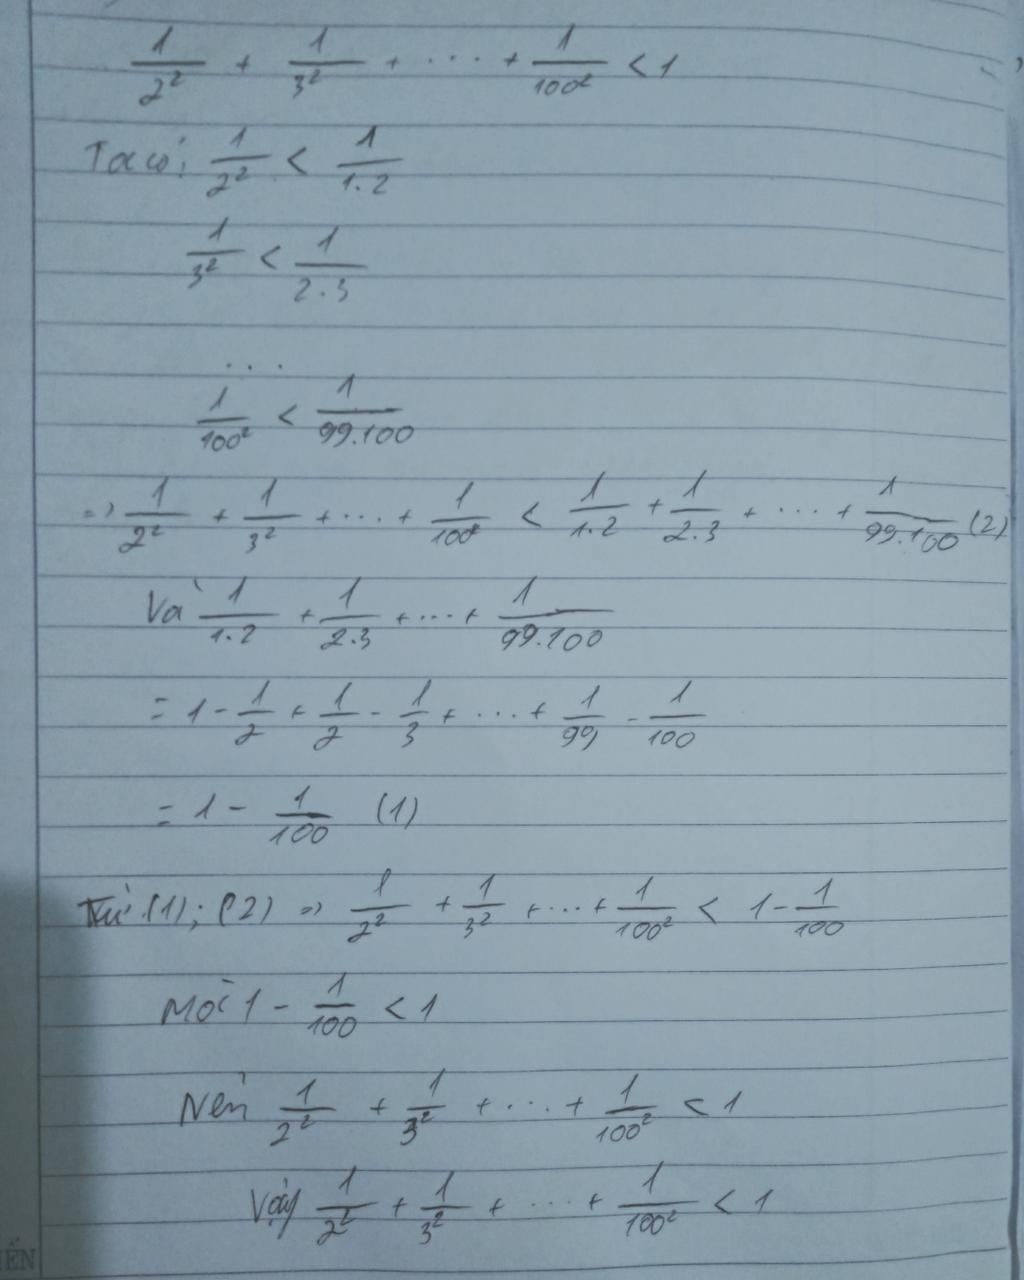 1/2² + 1/3² + .... + 1/100² < 1
Ta có: 1/2² < 1/1.2
1/3² < 1/2.3
...
1/100² < 1/99.100
=> 1/2² + 1/3² + ... + 1/100² < 1/1.2 + 1/2.3 + ... + 1/99.100 (2)
Và 1/1.2 + 1/2.3 + ... + 1/99.100
= 1 - 1/2 + 1/2 - 1/3 + ... + 1/99 - 1/100
= 1 - 1/100 (1)
Từ (1); (2) => 1/2² + 1/3² + ... + 1/100² < 1 - 1/100
Mà 1 - 1/100 < 1
Nên 1/2² + 1/3² + ... + 1/100² < 1
Vậy 1/2² + 1/3² + ... + 1/100² < 1
IẾN